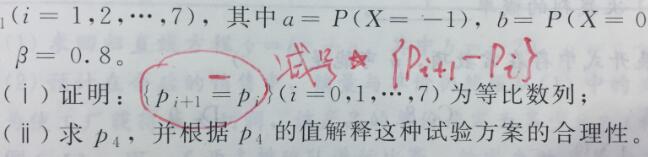 ₁(i = 1,2,⋯,7), 其中 a = P(X = −1), b = P(X = 0
β = 0.8。
减号☆ {P_{i+1} − P_i}
(ⅰ) 证明: {p_{i+1} = p_i}(i = 0,1,⋯,7) 为等比数列;
(ⅱ) 求 p₄, 并根据 p₄ 的值解释这种试验方案的合理性。